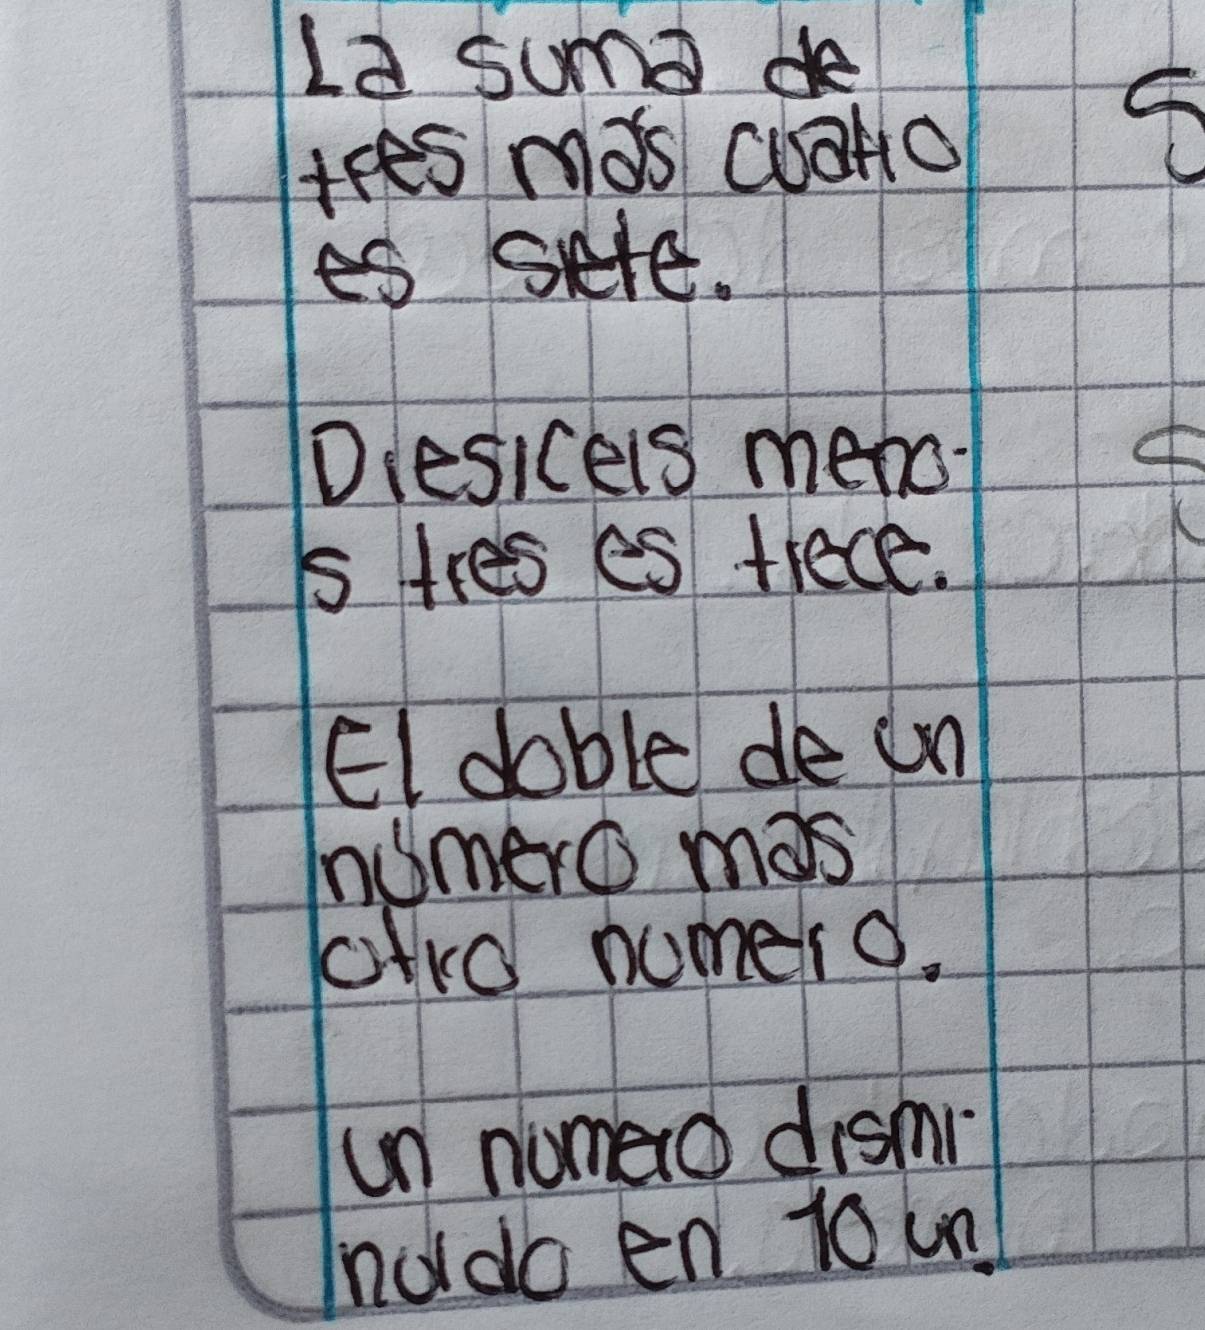 La suma de
tres más cuatro
es siete.
Diesiceis meno-
s tres es trece.
El doble de un
número mas
otro numero.
un numero dismi-
nuido en 10 un.